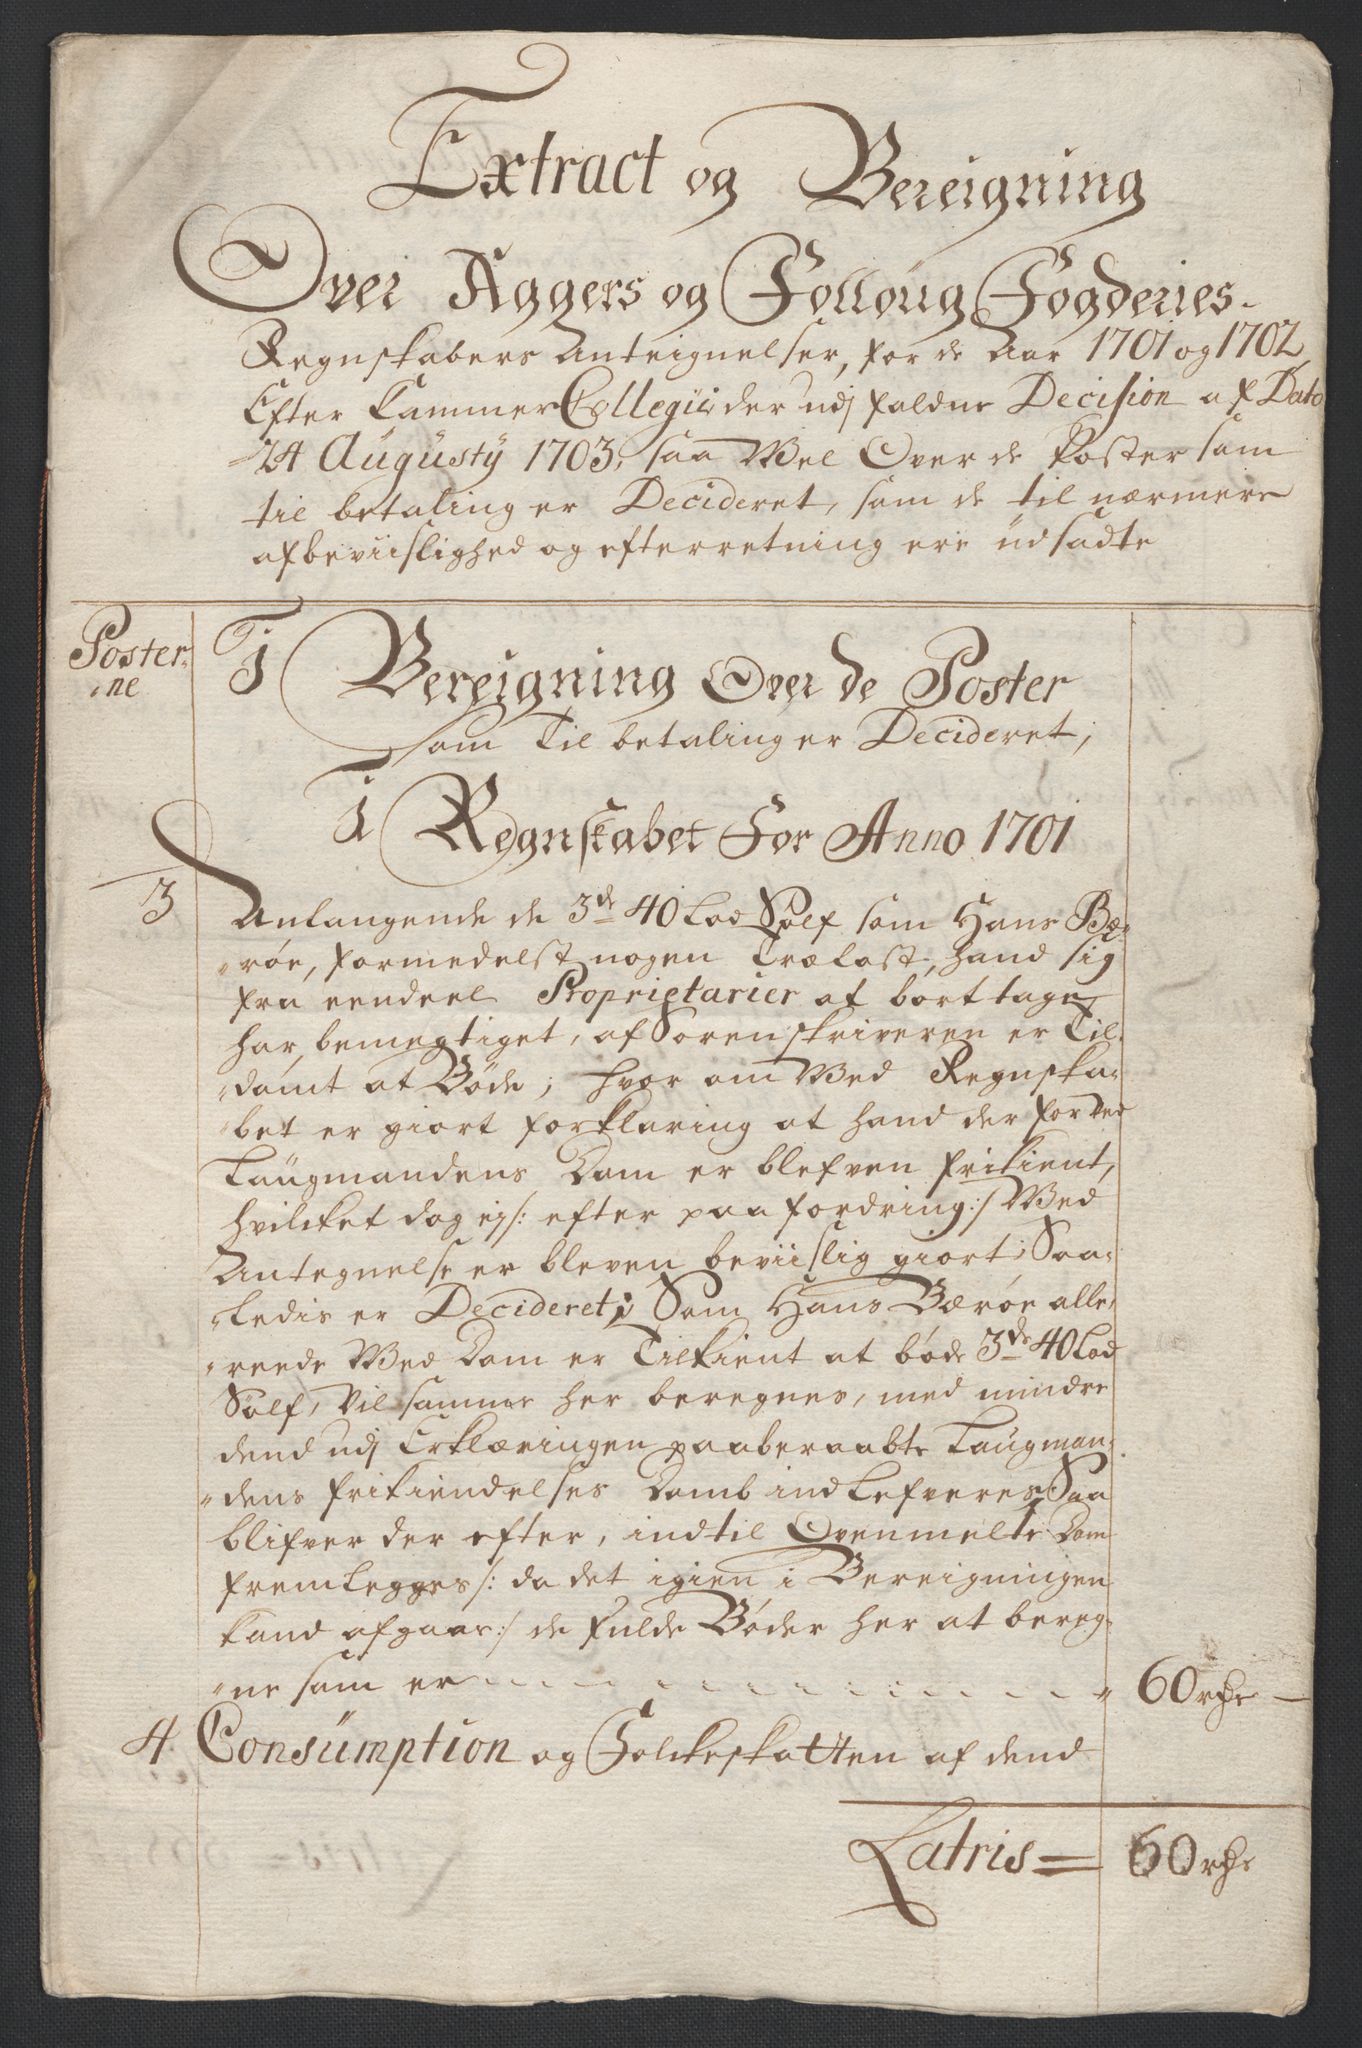 Extract og Bereigning
Over Aggers og Folloug Fogderies
Regnskabers Anteignelser, for de Aar 1701 og 1702
Efter Cammer Collegii der udj faldne Decision af Dato
24 Augusty 1703, saa Vel Over de Poster som
til betaling er Decideret, som de til nærmere
afbeviislighed og efterretning ere udsadte
Poster
ne
I Bereigning Over de Poster
som Til betaling er Decideret,
I Regnskabet For Anno 1701
3 Anlangende de 3de 40 Lod Sølf som Hans Bæ-
røe, formedelst nogen Trælast, hand sig
fra eendeel Proprietarier at bort tage
har bemegtiget, af Sorenskriveren er Til-
dømt at Bøde; hvor om Ved Regnska-
bet er giort forklaring at hand der for ved
Laugmandens Dom er blefven frikient,
hvilcket dog ej /: efter paafordring :/ Ved
Antegnelse er bleven beviislig giort; Saa-
ledis er Decideret; Som Hans Bærøe alle-
reede Ved Dom er Tilkient at bøde 3de 40 Lod
Sølf, Vil samme her beregnes, med mindre
dend udj Erklæringen paaberaabte Laugman-
dens frikiendelses Domb indlefveres, Saa
blifver der efter, indtil Ovenmelte Dom
fremlegges /: da det igien i Bereigningen
kand afgaae :/ de fulde Bøder her at bereg-
ne som er 60 rdr
4 Consumption og Folckeskatten af dend
Latris = 60 rdr